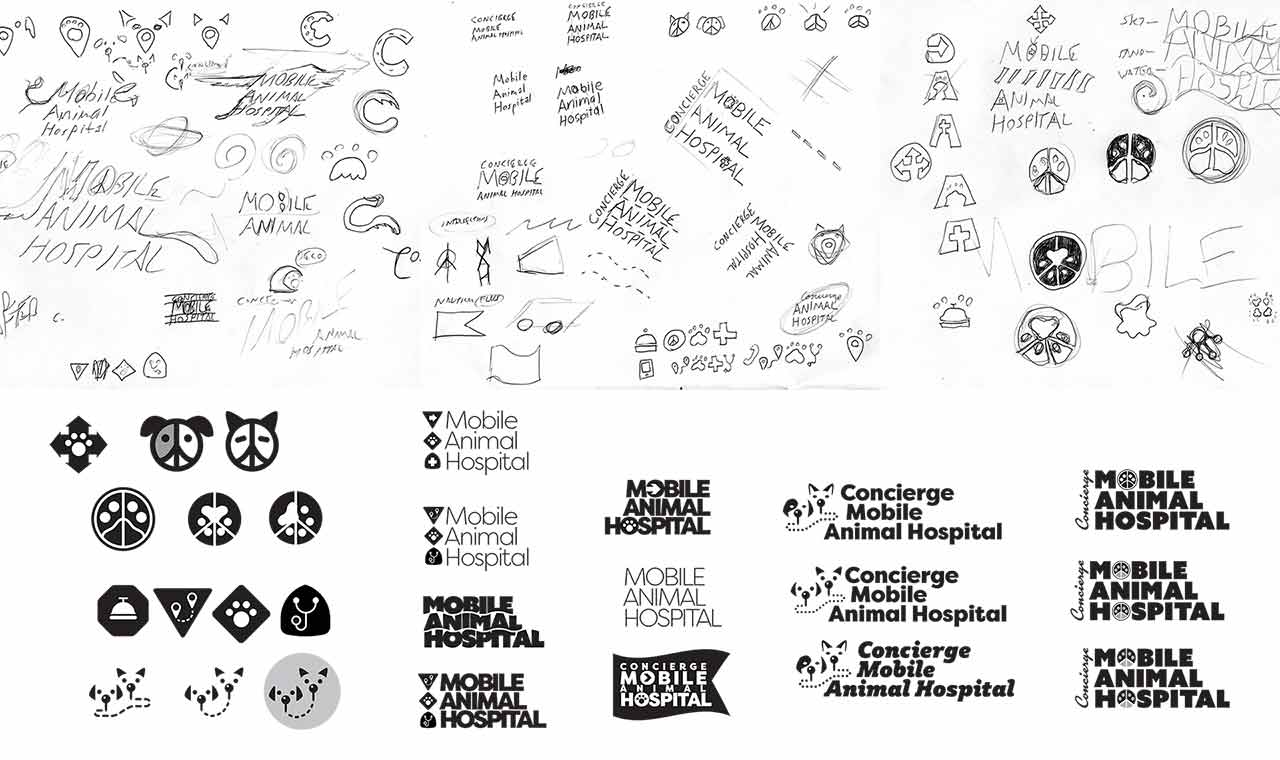 Mobile
Animal
Hospital
MOBILE
ANIMAL
HOSPITAL
MOBILE
ANIMAL
HOSPITAL
MOBILE
ANIMAL
CONCIERGE
MOBILE
HOSPITAL
MOBILE
ANIMAL
HOSPITAL
C.
CONCIERGE
MOBILE
ANIMAL HOSPITAL
CONCIERGE
MOBILE
ANIMAL
HOSPITAL
Mobile
Animal
Hospital
Mobile
Animal
Hospital
CONCIERGE
MOBILE
ANIMAL HOSPITAL
CONCIERGE
MOBILE
ANIMAL
HOSPITAL
CONCIERGE
MOBILE
ANIMAL
HOSPITAL
CONCIERGE
MOBILE
HOSPITAL
ANIMAL
INTERSECTIONS
Concierge
ANIMAL
HOSPITAL
MOBILE
ANIMAL
HOSPITAL
SKY—
SAND—
WATER—
MOBILE
ANIMAL
Hospital
MOBILE
Mobile
Animal
Hospital
Mobile
Animal
Hospital
MOBILE
ANIMAL
HOSPITAL
MOBILE
ANIMAL
HOSPITAL
MOBILE
ANIMAL
HOSPITAL
MOBILE
ANIMAL
HOSPITAL
CONCIERGE
MOBILE
ANIMAL
HOSPITAL
Concierge
Mobile
Animal Hospital
Concierge
Mobile
Animal Hospital
Concierge
Mobile
Animal Hospital
Concierge
MOBILE
ANIMAL
HOSPITAL
Concierge
MOBILE
ANIMAL
HOSPITAL
Concierge
MOBILE
ANIMAL
HOSPITAL